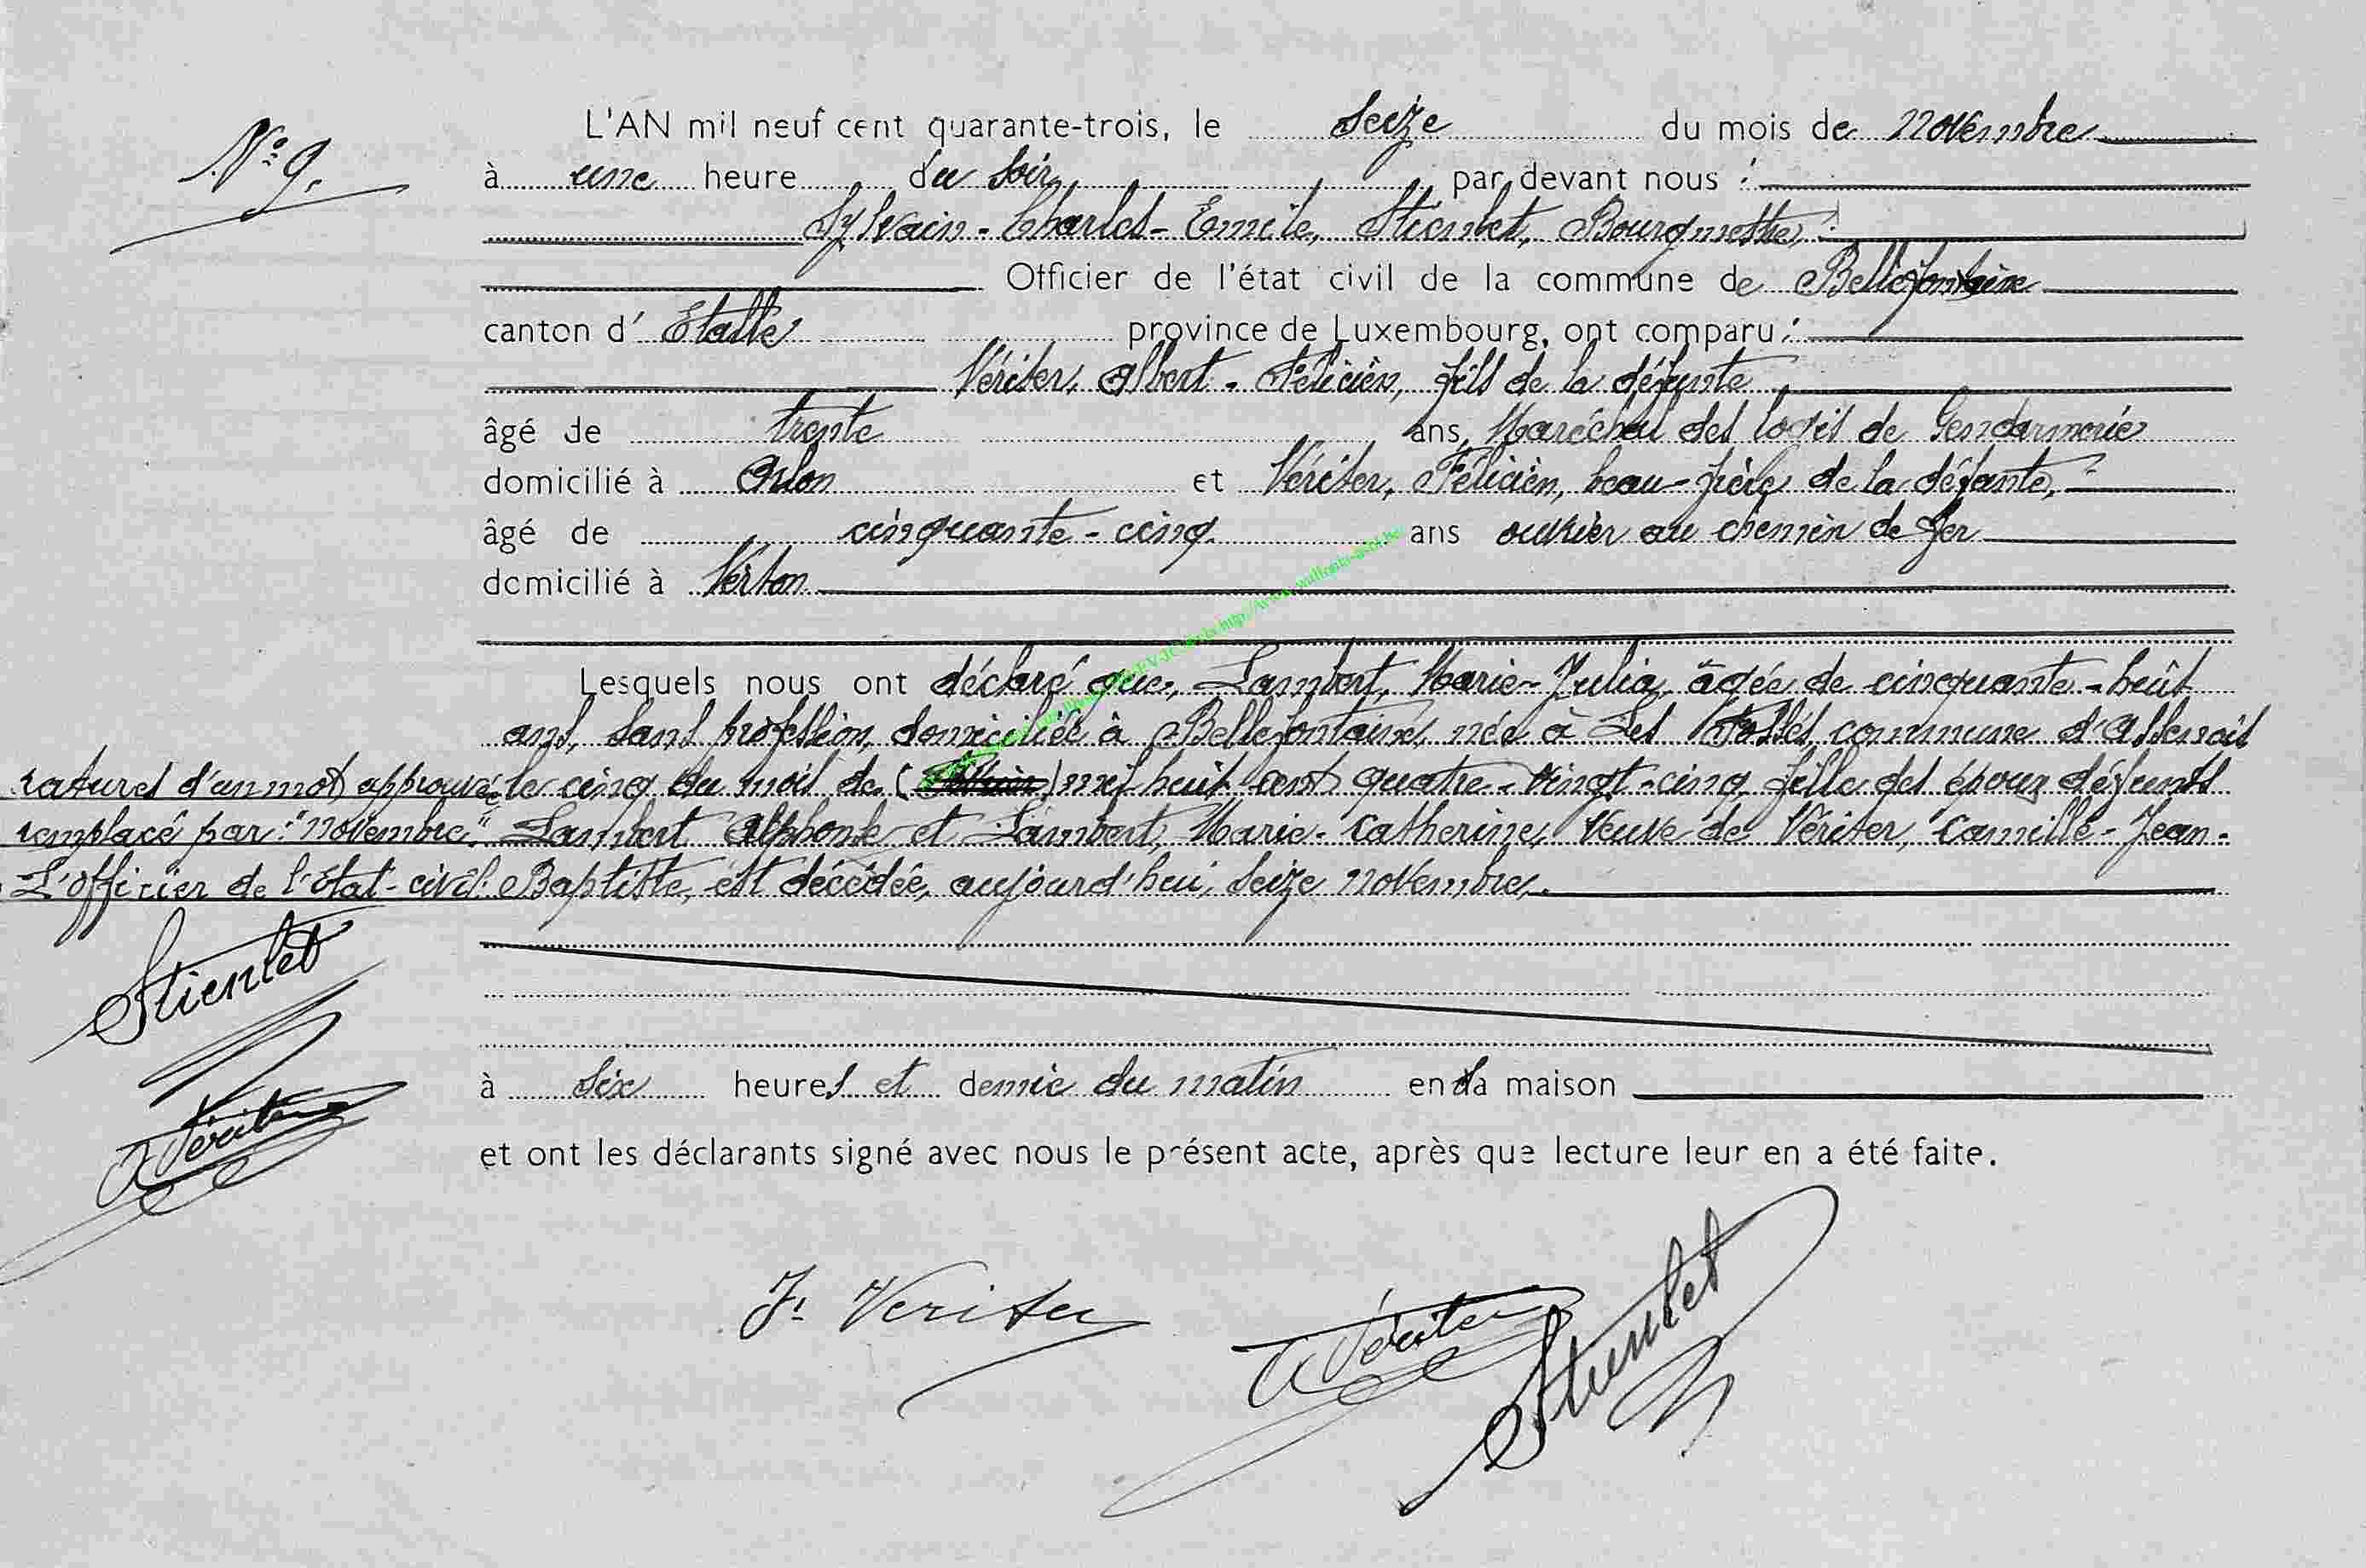 N° 9.
L'AN mil neuf cent quarante-trois, le seize du mois de novembre
à une heure du soir, par devant nous :
Sylvain-Charles-Emile, Stienlet, Bourgmestre,
Officier de l'état civil de la commune de Bellefontaine
canton d'Etalle province de Luxembourg, ont comparu :
Vériter, Albert-Félicien, fils de la défunte
âgé de trente ans, Maréchal des logis de Gendarmerie
domicilié à Arlon et Vériter, Félicien, beau-frère de la défunte,
âgé de cinquante-cinq ans ouvrier au chemin de fer
domicilié à Virton
Lesquels nous ont déclaré que, Lambert, Marie-Julia, âgée de cinquante-huit
ans, sans profession, domiciliée à Bellefontaine, née à Les Fossés, commune d'Assenois
le cinq du mois de ( ) mil huit cent quatre-vingt-cinq, fille des époux défunts
Lambert Alphonse et Lambert, Marie-Catherine, veuve de Vériter, Camille-Jean-
Baptiste, est décédée, aujourd'hui, seize novembre,
ratures d'un mot approuvée
remplacé par : "novembre".
L'officier de l'état-civil.
Stienlet
A Vériter
à six heures et demie du matin en sa maison
et ont les déclarants signé avec nous le présent acte, après que lecture leur en a été faite.
F. Veriter
A Vériter
Stienlet